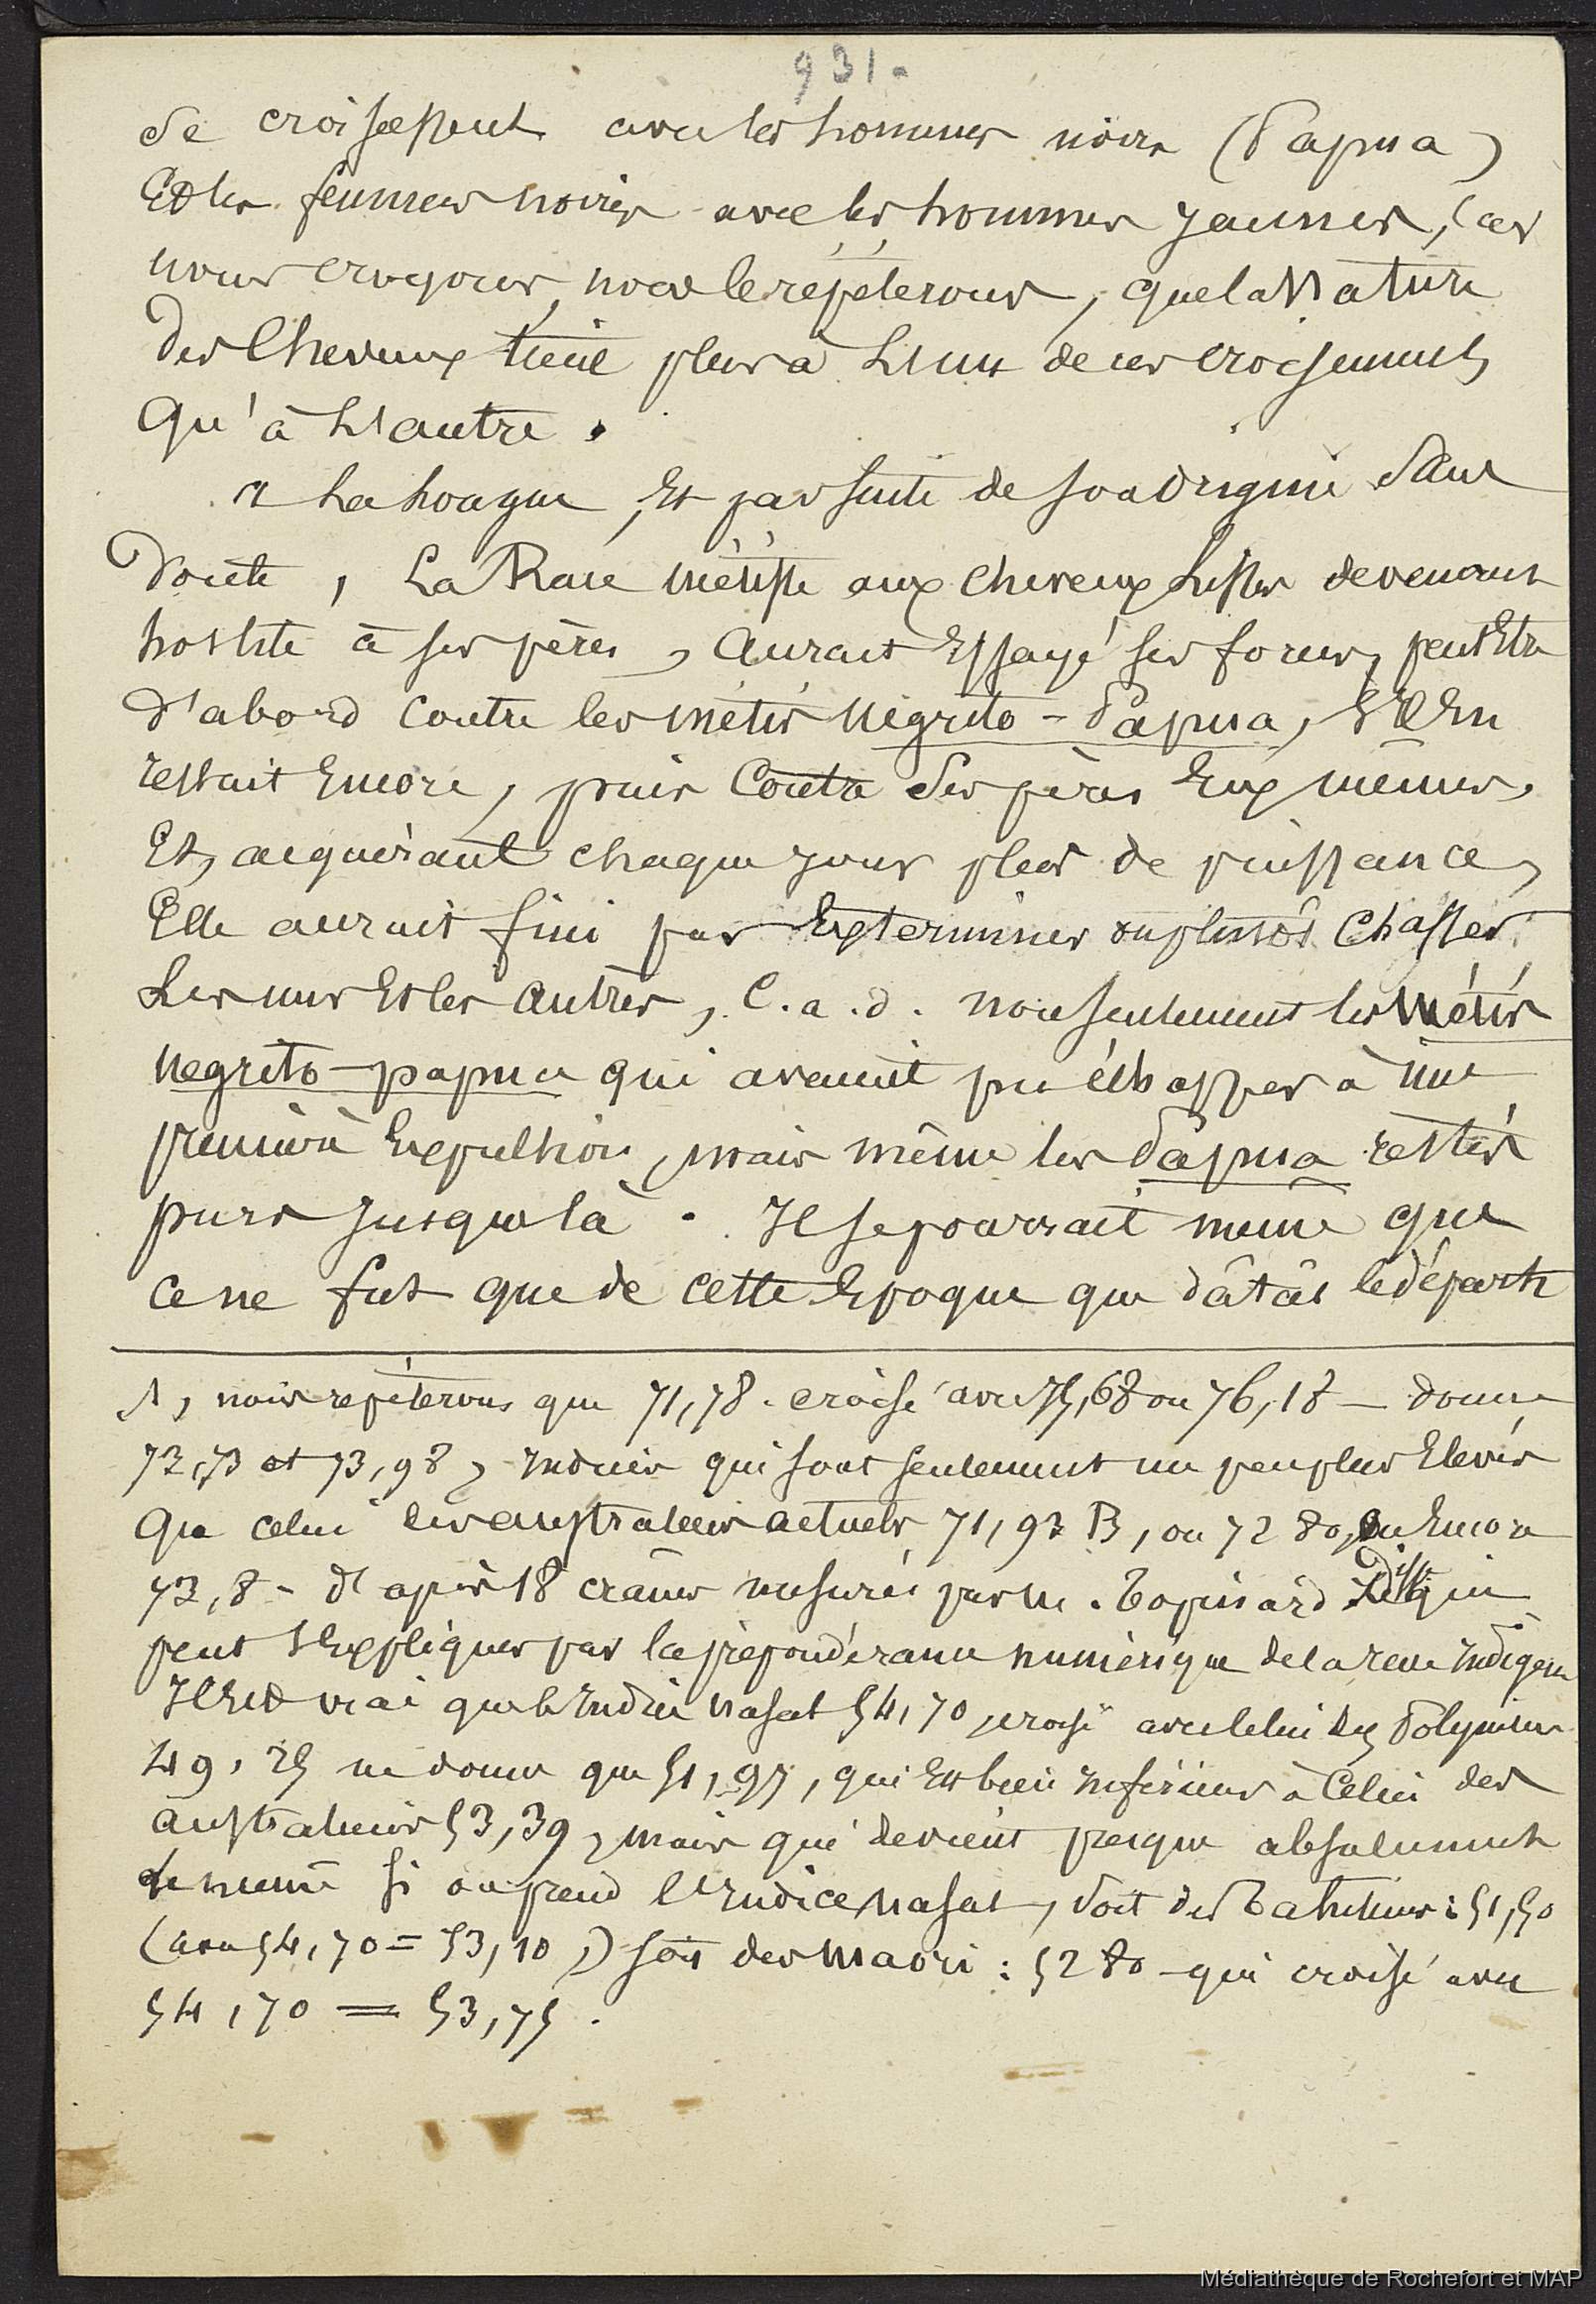 931.
se croisassent avec les hommes noirs (Papua)
Et les femmes noires avec les hommes jaunes, (car
nous croyons, nous le répéterons, que la Nature
des Cheveux tient plus à L'un de ces croisements
qu'à L'autre.
à La longue, Et par suite de son Origine Sans
Doute, La Race métisse aux cheveux Lisses devenant
hostile à ses pères, aurait Essayé ses forces, peut Etre
d'abord contre les métis Négrito-Papua, S'il En
restait Encore, puis Contre Ses pères Eux mêmes,
Et, acquérant chaque jour plus de puissance,
Elle aurait fini par Exterminer ou plutôt Chasser
Les uns Et les autres, C.a.d. non seulement les Métis
Negrito-papua qui avaient pu échapper à une
première Expulsion, mais même les Papua restés
purs Jusque là. Il se pourrait même que
ce ne fut que de cette Epoque que dâtât le départ
1, nous répéterons que 71,78. croisé avec 75,68 ou 76,18 — donne
73,73 et 73,98, Indices qui sont seulement un peu plus Elevés
que celui des australiens actuels 71,93 B, ou 72 80, ou Encore
73,8 - d'après 18 crânes mesurés par M. Topinard diffce qui
peut s'Expliquer par la prépondérance numérique de la race Indigène
Il Est vrai que l'Indice Nasal 54,70 croisé avec celui des Polynésiens
49,25 ne donne que 51,97, qui Est bien Inférieur à Celui des
australiens 53,39, mais qui devient presque absolument
le même si on prend l'Indice Nasal, soit des Tahitiens : 51,50
(avec 54,70 = 53,10,) soit des Maori : 52 80 - qui croisé avec
54,70 = 53,75.
Médiathèque de Rochefort et MAP